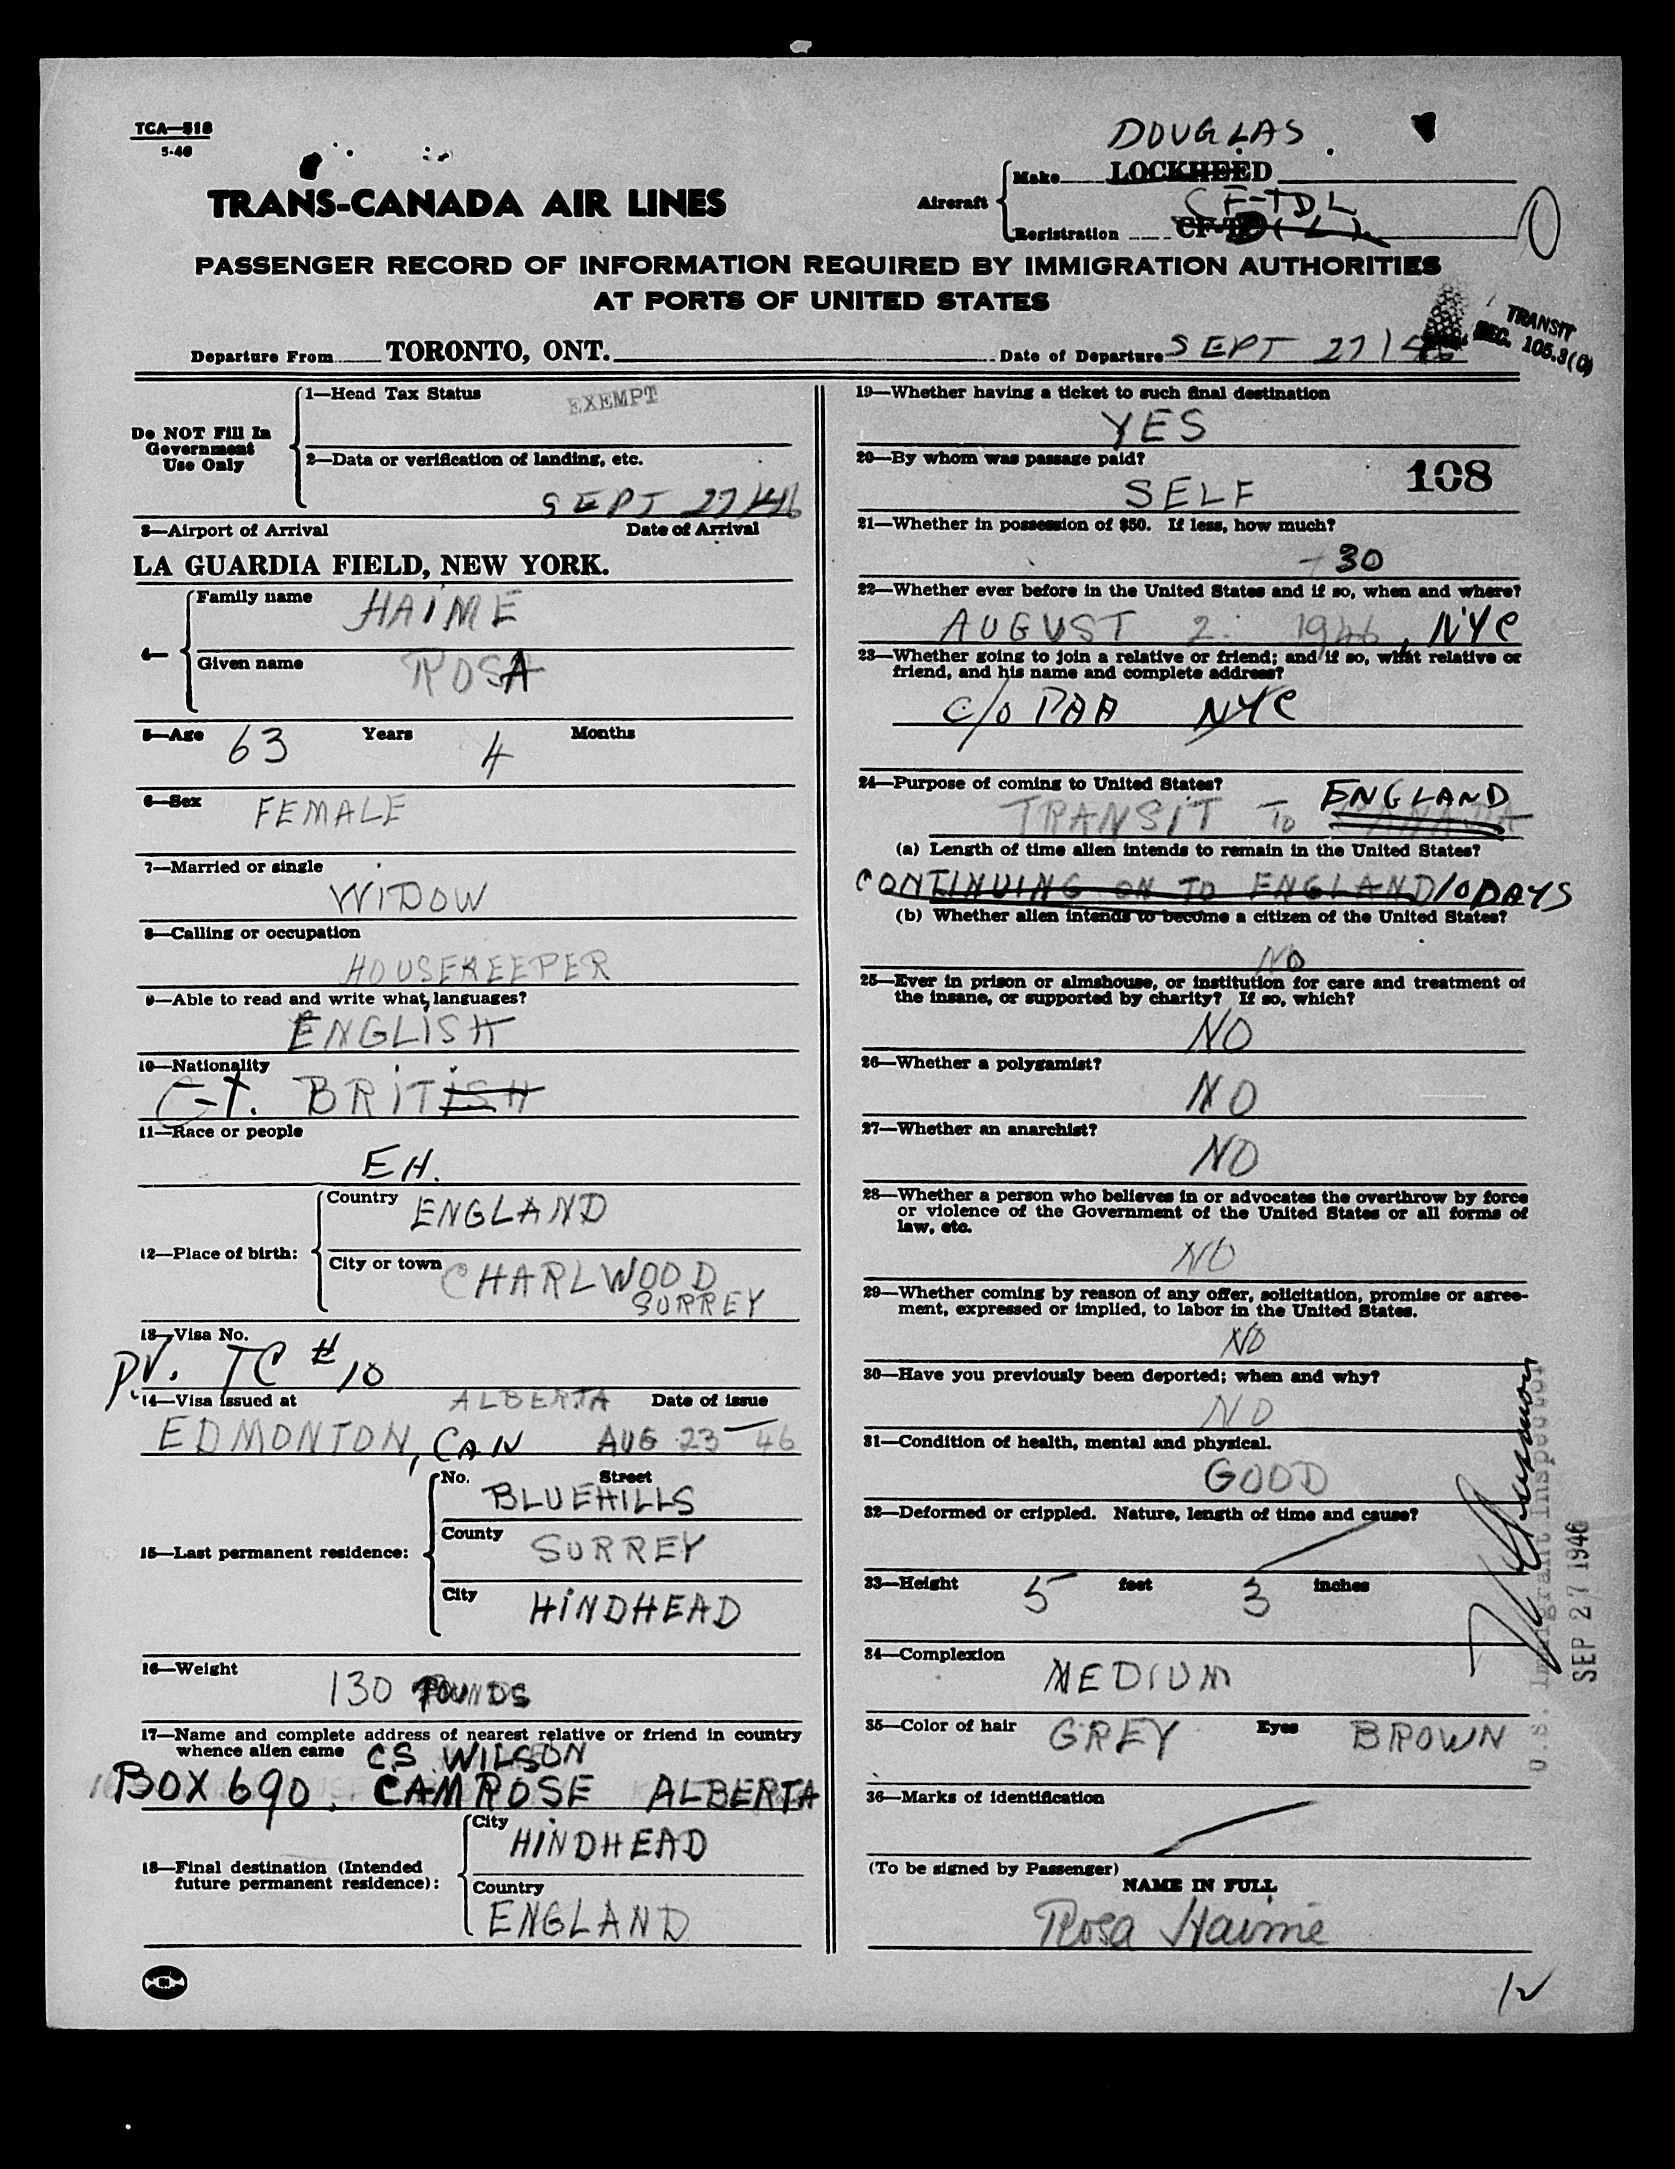 TCA—518
5-46
DOUGLAS
Make LOCKHEED
TRANS-CANADA AIR LINES
Aircraft
CF-TDL
Registration CF-T ( L ).
O
PASSENGER RECORD OF INFORMATION REQUIRED BY IMMIGRATION AUTHORITIES
AT PORTS OF UNITED STATES
TRANSIT
SEC. 105.3(C)
Departure From TORONTO, ONT. Date of Departure SEPT 27/46
Do NOT Fill In
Government
Use Only
1—Head Tax Status EXEMPT
2—Data or verification of landing, etc.
SEPT 27/46
3—Airport of Arrival Date of Arrival
LA GUARDIA FIELD, NEW YORK.
4—
Family name HAIME
Given name ROSA
5—Age 63 Years 4 Months
6—Sex FEMALE
7—Married or single
WIDOW
8—Calling or occupation
HOUSEKEEPER
9—Able to read and write what languages?
ENGLISH
10—Nationality
Gt. BRITISH
11—Race or people
EH.
12—Place of birth:
Country ENGLAND
City or town CHARLWOOD
SURREY
13—Visa No.
P.V. TC # 10
14—Visa issued at ALBERTA Date of issue
EDMONTON, CAN AUG 23-46
15—Last permanent residence:
No. Street
BLUEHILLS
County SURREY
City HINDHEAD
16—Weight 130 POUNDS
17—Name and complete address of nearest relative or friend in country
whence alien came C.S. WILSON
BOX 690, CAMROSE ALBERTA
18—Final destination (Intended
future permanent residence):
City HINDHEAD
Country
ENGLAND
19—Whether having a ticket to such final destination
YES
20—By whom was passage paid?
108
SELF
21—Whether in possession of $50. If less, how much?
- 30
22—Whether ever before in the United States and if so, when and where?
AUGUST 2. 1946, NYC
23—Whether going to join a relative or friend; and if so, what relative or
friend, and his name and complete address?
c/o PAA NYC
24—Purpose of coming to United States?
ENGLAND
TRANSIT - TO CANADA
(a) Length of time alien intends to remain in the United States?
CONTINUING ON TO ENGLAND 10 DAYS
(b) Whether alien intends to become a citizen of the United States?
NO
25—Ever in prison or almshouse, or institution for care and treatment of
the insane, or supported by charity? If so, which?
NO
26—Whether a polygamist?
NO
27—Whether an anarchist?
NO
28—Whether a person who believes in or advocates the overthrow by force
or violence of the Government of the United States or all forms of
law, etc.
NO
29—Whether coming by reason of any offer, solicitation, promise or agree-
ment, expressed or implied, to labor in the United States.
NO
30—Have you previously been deported; when and why?
NO
31—Condition of health, mental and physical.
GOOD
32—Deformed or crippled. Nature, length of time and cause?
33—Height 5 feet 3 inches
34—Complexion MEDIUM
35—Color of hair GREY Eyes BROWN
36—Marks of identification
(To be signed by Passenger)
NAME IN FULL
Rosa Haime
U.S. Immigrant Inspector
SEP 27 1946
12